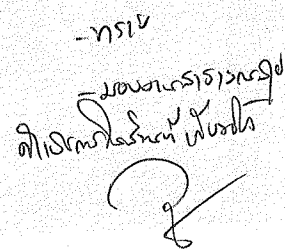 - ทราบ
- มอบงานสาธารณสุข
ดำเนินการในส่วนที่เกี่ยวข้อง